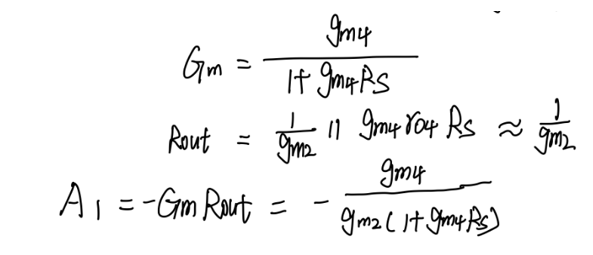 Gm = gm4 / (1+gm4Rs)
Rout = 1/gm2 || gm4 ro4 Rs ≈ 1/gm2
A1 = -Gm Rout = - gm4 / (gm2(1+gm4Rs))